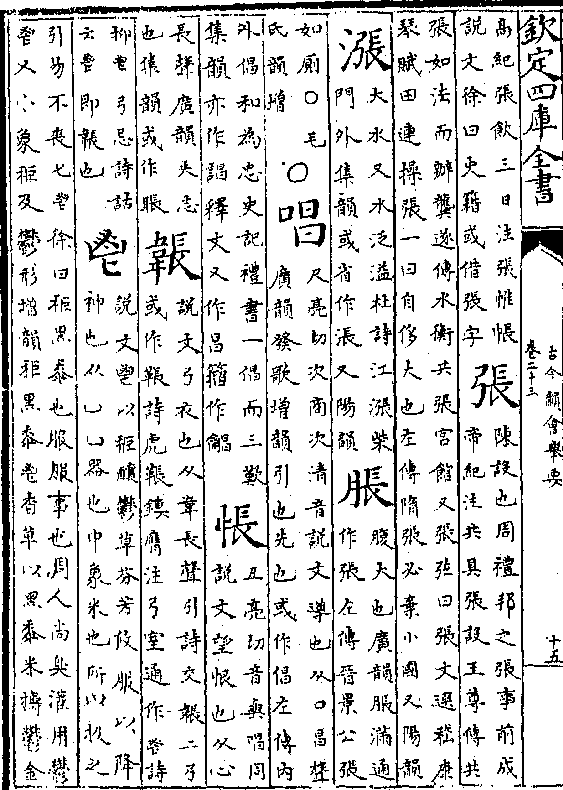 欽定四庫全書
古今韻會舉要
卷二十三
十五
高紀張飲三日注張帷帳
說文徐曰史籍或借張字
張
陳設也周禮邦之張事前成
帝紀注共具張設王尊傳共
張如法而辦龔遂傳水衡共張宮館又張弛曰張文選嵇康
琴賦田連操張一曰自侈大也左傳隋張必棄小國又陽韻
漲
大水又水泛溢杜詩江漲柴
門外集韻或省作張又陽韻
脹
腹大也廣韻脹滿通
作張左傳晉景公張
如廁○毛
氏韻增
○唱
尺亮切次商次清音說文導也从口昌聲
廣韻發歌增韻引也先也或作倡左傳內
外倡和為忠史記禮書一倡而三歎
集韻亦作誯釋文又作昌籀作
悵
丑亮切音與唱同
說文望恨也从心
長聲廣韻失志
也集韻或作脹
韔
說文弓衣也从韋長聲引詩交韔二弓
或作韔詩虎韔鏤膺注弓室通作鬯詩
抑鬯弓忌詩詁
云鬯即韔也
鬯
說文鬯以秬釀鬱草芬芳攸服以降
神也从凵凵器也中象米也所以扱之
引易不喪匕鬯徐曰秬黑黍也服服事也周人尚臭灌用鬱
鬯又小象秬及鬱形增韻秬黑黍鬯香草以黑黍米擣鬱金